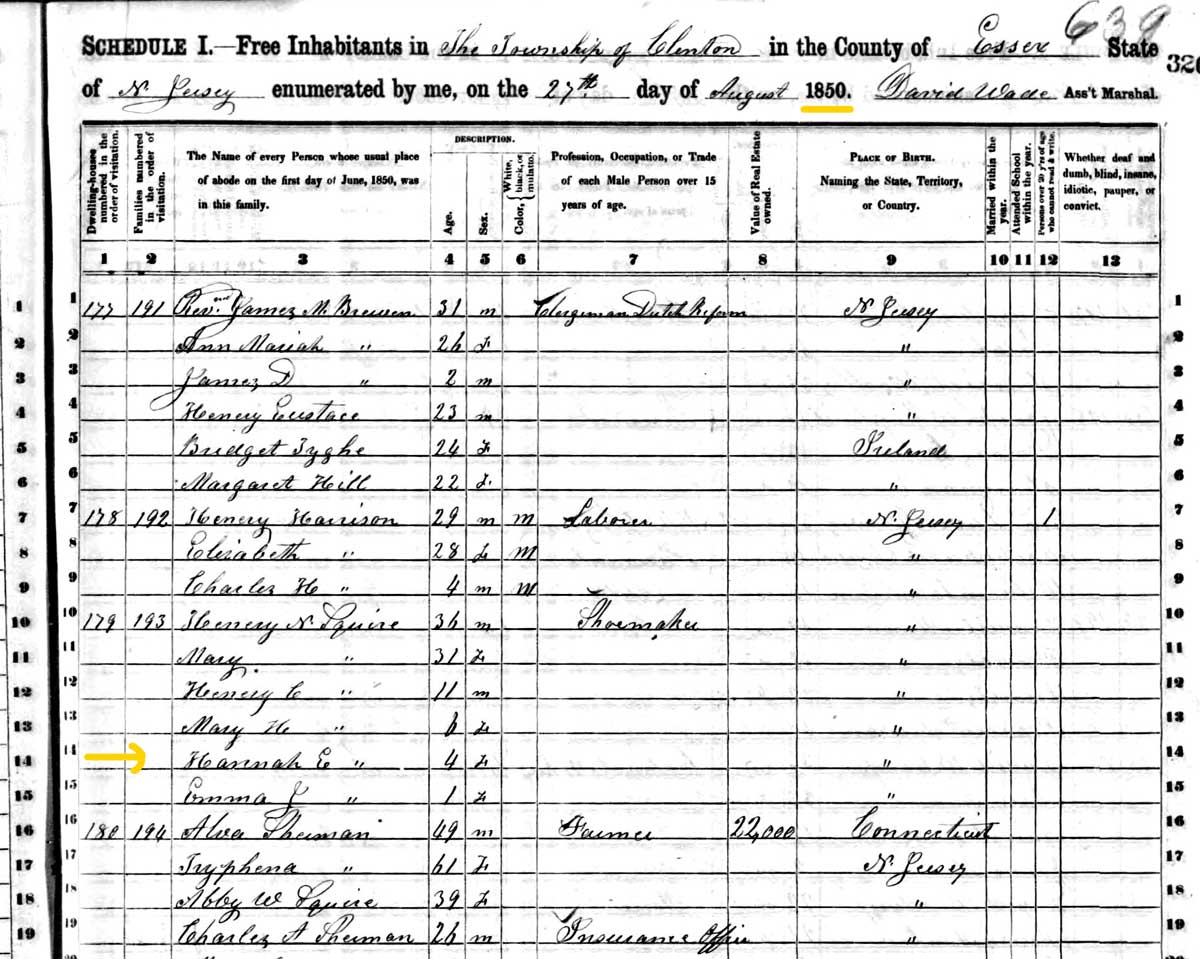 639
SCHEDULE I.—Free Inhabitants in The Township of Clinton in the County of Essex State 320
of N Jersey enumerated by me, on the 27th day of August 1850. David Wade Ass't Marshal.
Dwelling-houses numbered in the order of visitation.
Families numbered in the order of visitation.
The Name of every Person whose usual place of abode on the first day of June, 1850, was in this family.
DESCRIPTION.
Age.
Sex.
Color, { White, black, or mulatto.
Profession, Occupation, or Trade of each Male Person over 15 years of age.
Value of Real Estate owned.
PLACE OF BIRTH. Naming the State, Territory, or Country.
Married within the year.
Attended School within the year.
Persons over 20 y'rs of age who cannot read & write.
Whether deaf and dumb, blind, insane, idiotic, pauper, or convict.
1 2 3 4 5 6 7 8 9 10 11 12 13
1 1 177 191 Revd. James M. 31 m Clergiman Dutch Reform N Jersey 1
2 2 Ann Mariah " 26 F " 2
3 3 James D " 2 m " 3
4 4 Henery Eustace 23 m " 4
5 5 Bridget Tyghe 24 F Ireland 5
6 6 Margaret Hill 22 F " 6
7 7 178 192 Henery Harrison 29 m m Laborer N. Jersey 1 7
8 8 Elizabeth " 28 F m " 8
9 9 Charles H " 4 m m " 9
10 10 179 193 Henery N Squire 36 m Shoemaker " 10
11 11 Mary " 31 F " 11
12 12 Henery C " 11 m " 12
13 13 Mary H " 6 F " 13
14 14 Hannah E " 4 F " 14
15 15 Emma J " 1 F " 15
16 16 180 194 Alva Sherman 49 m Farmer 22,000 Connecticut 16
17 17 Tryphena " 61 F N. Jersey 17
18 18 Abby W Squire 39 F " 18
19 19 Charles A Sherman 26 m Insurance Office " 19
20